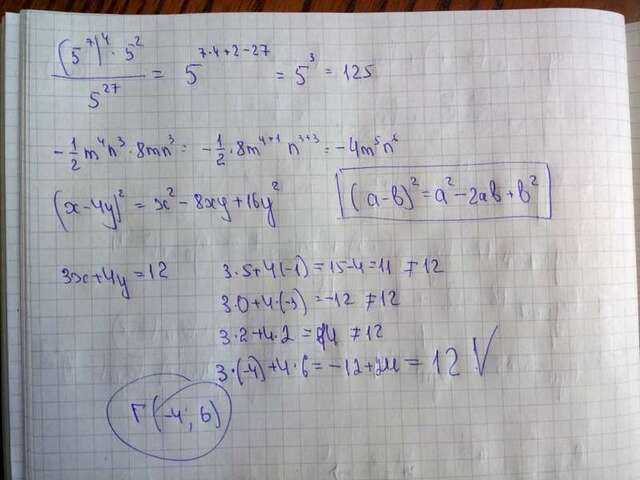 (5⁷)⁴ · 5² / 5²⁷ = 5^(7·4+2−27) = 5³ = 125
−1/2 m⁴n³ · 8mn³ = −1/2 · 8m⁴⁺¹ n³⁺³ = −4m⁵n⁶
(x−4y)² = x² − 8xy + 16y²
(a−b)² = a² − 2ab + b²
3x+4y = 12
3·5+4(−1) = 15−4 = 11 ≠ 12
3·0+4·(−3) = −12 ≠ 12
3·2+4·2 = 14 ≠ 12
3·(−4)+4·6 = −12+24 = 12 V
Г(−4; 6)